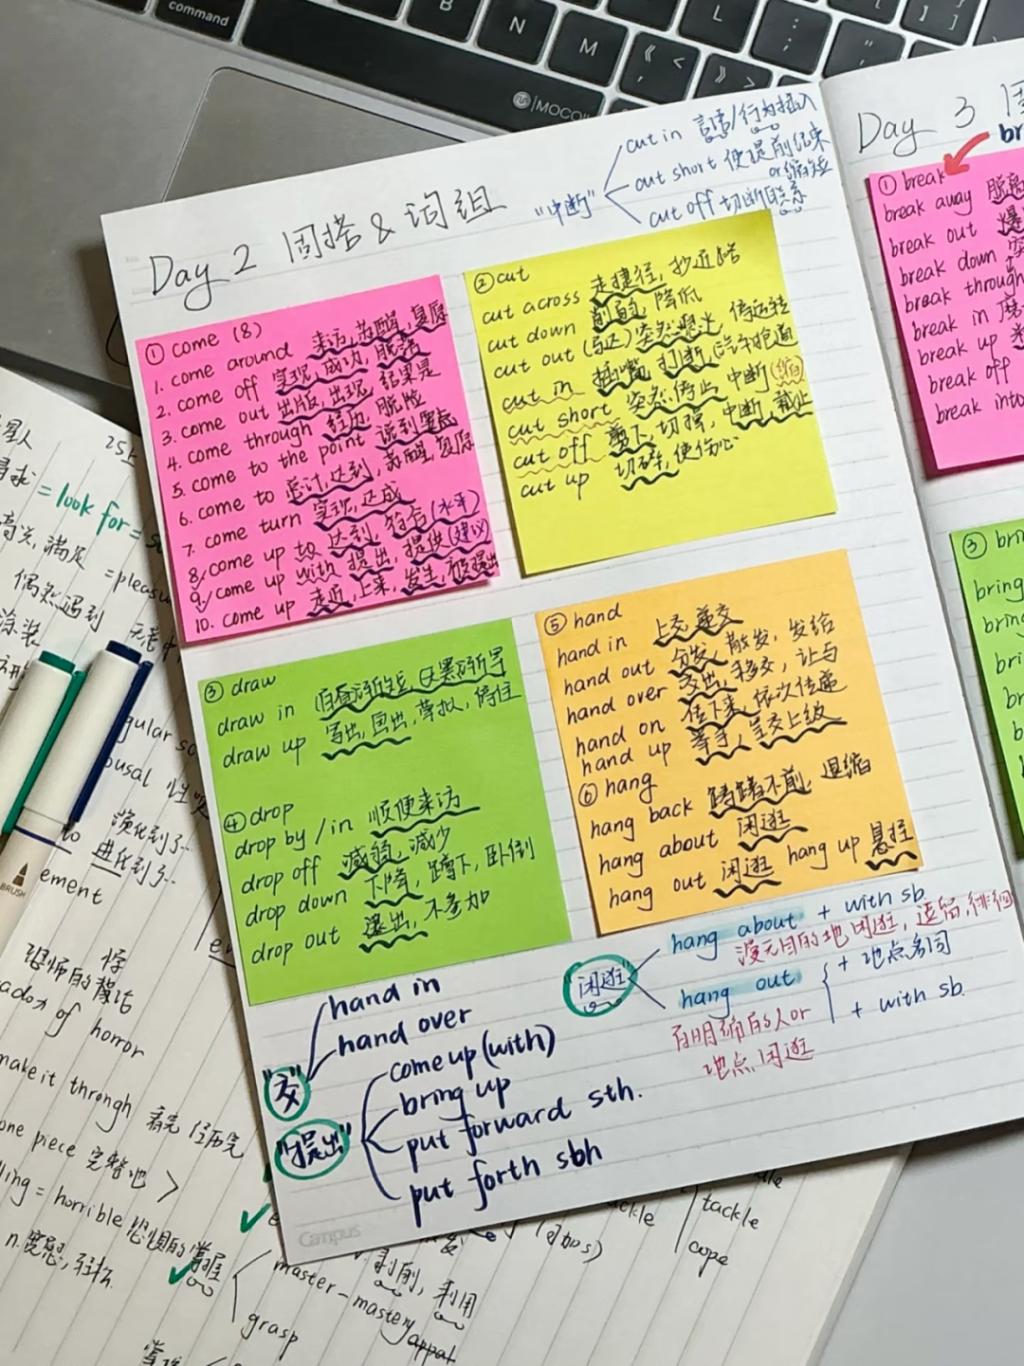 command
B
N
M
L
MOCOLL
Day 2 固搭&词组
"中断"
cut in 言语/行为插入
cut short 使提前结束
or缩短
cut off 切断联系
① come (8)
1. come around 来访,苏醒,复原
2. come off 实现,成功,脱落
3. come out 出版,出现,结果是
4. come through 经历,脱险
5. come to the point 说到要点
6. come to 总计,达到,苏醒,复原
7. come turn 实现,达成
8. come up to 达到,符合(水平)
9. come up with 提出,提供(建议)
10. come up 走近,上来,发生,被提出
② cut
cut across 走捷径,抄近路
cut down 削弱,降低
cut out (马达)突然熄火,停运转
cut in 插嘴,打断
cut short 突然停止,中断(缩)
cut off 剪下,切掉,中断,截止
cut up 切碎,使伤心
③ draw
draw in 白昼渐短,天黑渐早
draw up 写出,画出,草拟,停住
④ drop
drop by/in 顺便来访
drop off 减弱,减少
drop down 下降,蹲下,卧倒
drop out 退出,不参加
⑤ hand
hand in 上交,递交
hand out 分发,散发,发给
hand over 交出,移交,让与
hand on 传下来,依次传递
hand up 举手,呈交上级
⑥ hang
hang back 踌躇不前,退缩
hang about 闲逛
hang out 闲逛 hang up 悬挂
"闲逛"
hang about + with sb.
漫无目的地闲逛,逗留,徘徊
hang out
+ 地点名词
+ with sb.
有明确的人or
地点闲逛
"交"
hand in
hand over
"提出"
come up (with)
bring up
put forward sth.
put forth sbh
Campus
Day 3
① break
break away 脱离
break out
break down
break through
break in
break up
break off
break into
③ brin
bring
brin
bri
br
br
b
星人
25k
寻求 = look for =
高兴,满足 = pleasu
偶然遇到
涂装
gular so
ousal
演化到了..
进化到了..
BRUSH
ement
恐怖的
ados of horror
make it through 看完 经历完
one piece 完整地
ling = horrible 恐惧的
n. 宽慰,轻松
掌握
master - mastery
grasp
剥削,利用
appal
ckle
tackle
cope